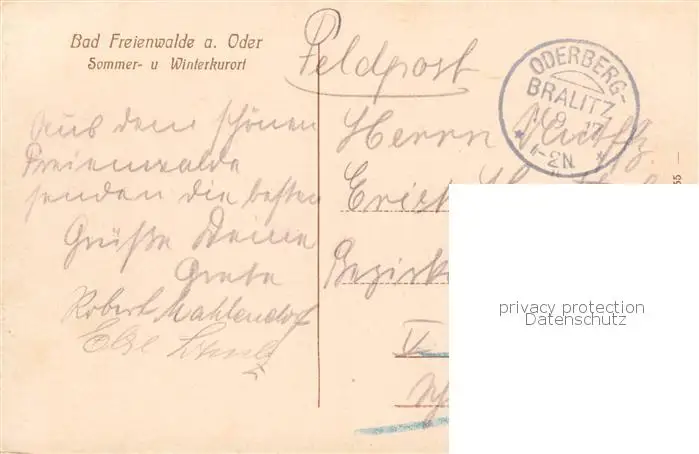 Bad Freienwalde a. Oder
Sommer- u Winterkurort
Feldpost
Aus dem schönen
Freienwalde
senden die besten
Grüße Deine
Grete
Robert Mahlendorf
Else
Herrn
Bezirks
V
ODERBERG-
BRALITZ
9 17
1-2N
55
privacy protection
Datenschutz